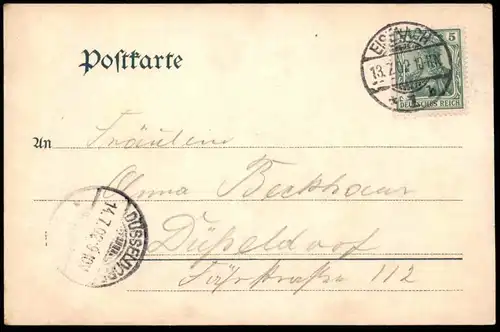 Postkarte
EISENACH
13.7.02
5
DEUTSCHES REICH
An
Fräulein
Anna Beckhaus
Düsseldorf
112
DÜSSELDORF
14.7.02